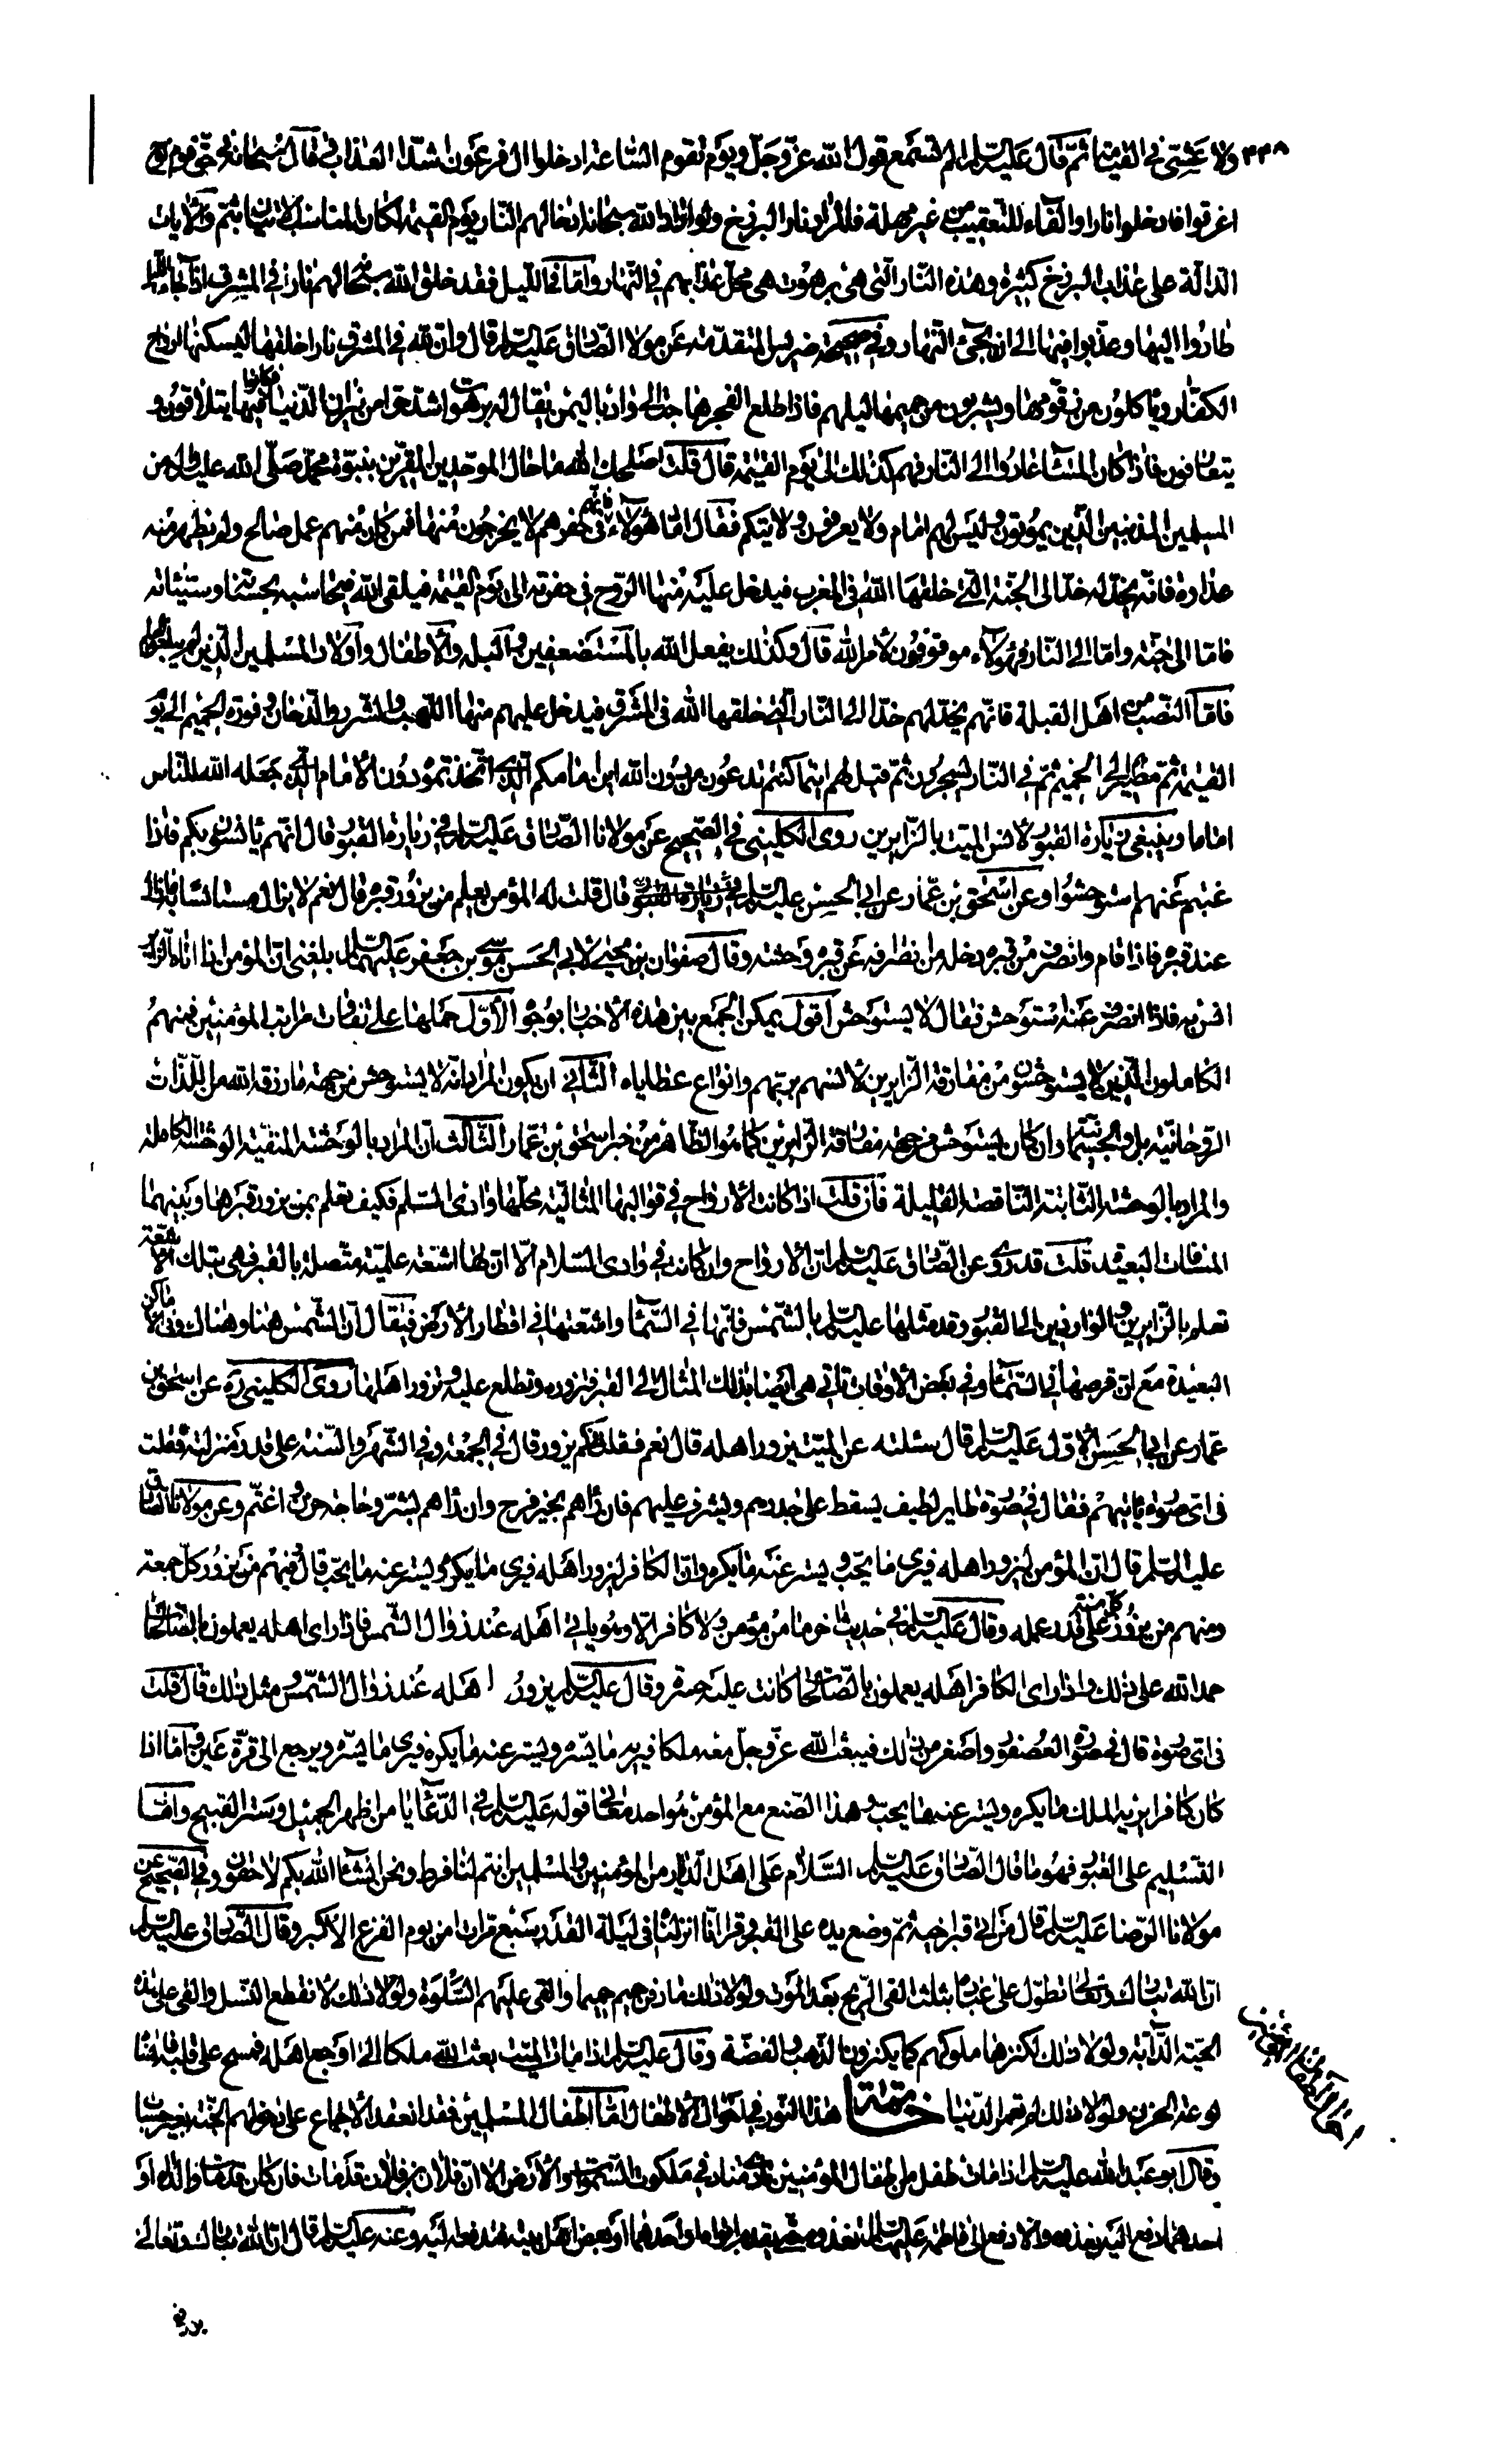 ٣٣٨ ولا عشي في القيمة ثم قال عليه السلام الم تسمع قول الله عز وجل ويوم تقوم الساعة ادخلوا ال فرعون اشد العذاب وقال سبحانه في حق قوم نوح
اغرقوا فادخلوا نارا والفاء للتعقيب من غير مهلة فالمراد نار البرزخ ولو اراد الله سبحانه ادخالهم النار يوم القيمة لكان المناسب الاتيان بثم والايات
الدالة على عذاب البرزخ كثيرة وهذه النار التي هي برهوت هي محل عذابهم في النهار واما في الليل فقد خلق الله سبحانه لهم نارا في المشرق اذا جاء الليل
طاروا اليها وعذبوا فيها الى ان يجئ النهار وفي صحيحة ضريس المتقدمة عن مولانا الصادق عليه السلام قال وان لله في المشرق نارا خلقها ليسكنها ارواح
الكفار وياكلون من زقومها ويشربون من حميمها ليلهم فاذا طلع الفجر هاجت الى واد باليمن يقال له برهوت اشد حرا من نيران الدنيا فكانوا فيها يتلاقون و
يتعارفون فاذا كان المسا عادوا الى النار فهم كذلك الى يوم القيمة قال قلت اصلحك الله ما حال الموحدين المقرين بنبوة محمد صلى الله عليه واله من
المسلمين المذنبين الذين يموتون وليس لهم امام ولا يعرفون ولايتكم فقال اما هؤلاء فانهم في حفرهم لا يخرجون منها فمن كان منهم عمل صالح ولم يظهر منه
عداوة فانه يخد له خد الى الجنة التي خلقها الله في المغرب فيدخل عليه منها الروح في حفرته الى يوم القيمة فيلقى الله فيحاسبه بحسناته وسيئاته
فاما الى جنة واما الى النار فهؤلاء موقوفون لامر الله قال وكذلك يفعل الله بالمستضعفين والبله والاطفال واولاد المسلمين الذين لم يبلغوا الحلم
فاما النصاب من اهل القبلة فانهم يخد لهم خد الى النار التي خلقها الله في المشرق فيدخل عليهم منها اللهب والشرر والدخان وفورة الحميم الى يوم
القيمة ثم مصيرهم الى الجحيم ثم في النار يسجرون ثم قيل لهم اينما كنتم تدعون من دون الله اين امامكم الذي اتخذتموه دون الامام الذي جعله الله للناس
اماما وينبغي زيارة القبور لانس الميت بالزايرين روى الكليني في الصحيح عن مولانا الصادق عليه السلام في زيارة القبور قال انهم يانسون بكم فاذا
غبتم عنهم استوحشوا وعن اسحق بن عمار عن ابي الحسن عليه السلام في زيارة القبور قال قلت له المؤمن يعلم من يزور قبره قال نعم لا يزال مستانسا به ما زال
عند قبره فاذا قام وانصرف من قبره دخله من انصرافه عن قبره وحشة وقال صفوان بن يحيى لابي الحسن موسى بن جعفر عليهما السلام بلغني ان المؤمن اذا اتاه الزاير
انس به فاذا انصرف عنه استوحش فقال لا يستوحش اقول يمكن الجمع بين هذه الاخبار بوجوه الاول حملها على تفاوت مراتب المؤمنين فمنهم
الكاملون الذين لا يستوحشون من مفارقة الزايرين لانسهم بربهم وانواع عطاياه الثاني ان يكون المراد انه لا يستوحش من جهة ما رزقه الله من اللذات
الروحانية بل والجسمية وان كان يستوحش من جهة مفارقة الزايرين كما هو الظاهر من خبر اسحق بن عمار الثالث ان المراد بالوحشة المنفية الوحشة الكاملة
والمراد بالوحشة الثابتة الناقصة القليلة فان قلت اذا كانت الارواح في قوالبها المثالية محلها وادى السلم فكيف تعلم بمن يزور قبرها وبينهما
المسافات البعيدة قلت قد روى عن الصادق عليه السلام ان الارواح وان كانت في وادى السلام الا ان لها اشعة علمية متصلة بالقبر فهي بتلك الاشعة
تعلم بالزايرين والواردين الى القبور وقد مثلها عليه السلام بالشمس فانها في السماء واشعتها في اقطار الارض فيقال ان الشمس هنا وهناك وفي الاماكن
البعيدة مع ان قرصها في السماء وفي بعض الاوقات تاتي هي ايضا بذلك المثال الى القبر فتزوره وتطلع عليه وتزور اهلها روى الكليني ره عن اسحق بن
عمار عن ابي الحسن الاول عليه السلام قال سئلته عن الميت يزور اهله قال نعم فقلت في كم يزور قال في الجمعة وفي الشهر والسنة على قدر منزلته فقلت
في اي صورة ياتيهم فقال في صورة طاير لطيف يسقط على جدرهم ويشرف عليهم فان راهم بخير فرح وان راهم بشر وحاجة حزن واغتم وعن مولانا الصادق
عليه السلام قال ان المؤمن ليزور اهله فيرى ما يحب ويستر عنه ما يكره وان الكافر ليزور اهله فيرى ما يكره ويستر عنه ما يحب قال فمنهم من يزور كل جمعة
ومنهم من يزور على قدر عمله وقال عليه السلام في حديث اخر ما من مؤمن ولا كافر الا وهو ياتي اهله عند زوال الشمس فاذا راى اهله يعملون بالصالحات
حمد الله على ذلك واذا راى الكافر اهله يعملون بالصالحات كانت عليه حسرة وقال عليه السلام يزور اهله عند زوال الشمس ومثل ذلك قال قلت
في اي صورة قال في صورة العصفور واصغر من ذلك فيبعث الله عز وجل معه ملكا فيريه ما يسره ويستر عنه ما يكره فيرى ما يسره ويرجع الى قرة عين واما اذا
كان كافرا يريه الملك ما يكره ويستر عنه ما يحب وهذا الصنع مع المؤمن هو احد معاني قوله عليه السلام في الدعاء يا من اظهر الجميل وستر القبيح واما
التسليم على القبور فهو ما قال الصادق عليه السلام السلام على اهل الديار من المؤمنين والمسلمين انتم لنا فرط ونحن انشاء الله بكم لاحقون وفي الصحيح عن
مولانا الرضا عليه السلام قال من اتى قبر اخيه ثم وضع يده على القبر وقرا انا انزلناه في ليلة القدر سبع مرات امن يوم الفزع الاكبر وقال الصادق عليه السلام
ان الله تبارك وتعالى تطول على عباده بثلث القى الريح بعد الموت ولولا ذلك ما دفن حميم حميما والقى عليهم السلوة ولولا ذلك لانقطع النسل والقى على هذه
الحبة الدابة ولولا ذلك لكنزها ملوكهم كما يكنزون الذهب والفضة وقال عليه السلام اذا مات الميت بعث الله ملكا الى اوجع اهله فمسح على قلبه فانساه
لوعة الحزن ولولا ذلك لم تعمر الدنيا خاتمة هذا النور في احوال الاطفال اما اطفال المسلمين فقد انعقد الاجماع على دخولهم الجنة بغير حساب
وقال ابو عبد الله عليه السلام اذا مات طفل من اطفال المؤمنين نادى مناد في ملكوت السموات والارض الا ان فلان بن فلان قد مات فان كان قد مات والداه او
احدهما دفع اليه يغذوه والا دفع الى فاطمة عليها السلام تغذوه حتى يقدم ابواه او احدهما او بعض اهل بيته فتدفعه اليه وعنه عليه السلام قال ان الله تبارك وتعالى